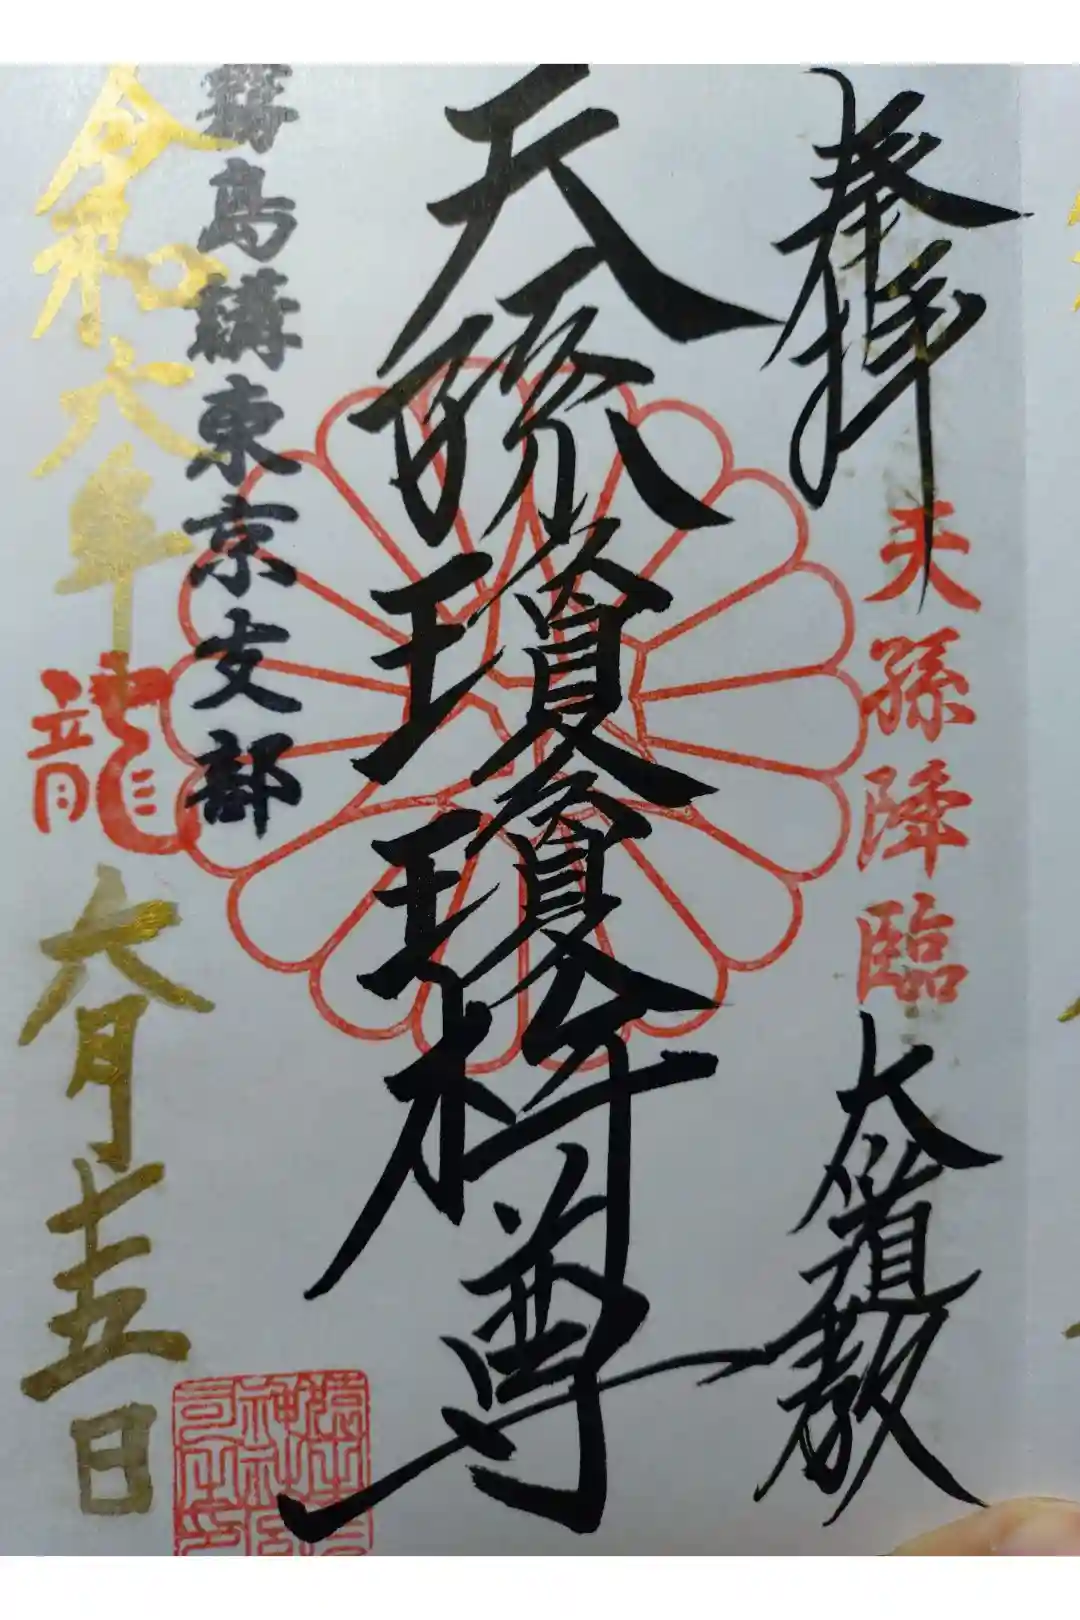 奉拝
天孫降臨
大道教
天孫瓊瓊杵尊
霧島講東京支部
令和六年
龍
六月十五日